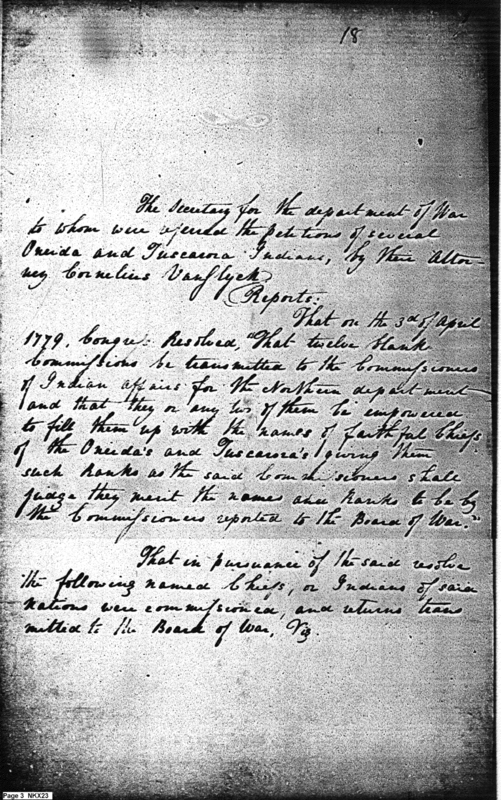 18
The Secretary for the department of War
to whom were referred the petitions of several
Oneida and Tuscarora Indians, by their Attor
ney Cornelius VanSlyck
Reports:
That on the 3d of April
1779. Congress Resolved, "That twelve blank
Commissions be transmitted to the Commissioners
of Indian affairs for the Northern department
and that they or any two of them be empowered
to fill them up with the names of faithful Chiefs
of the Oneida's and Tuscarora's giving them
such Ranks as the said Commissioners shall
judge they merit the names and Ranks to be by
the Commissioners reported to the Board of War."
That in pursuance of the said resolve
the following named Chiefs, or Indians of said
nations were commissioned, and returns trans
mitted to the Board of War, Viz.
Page 3 NKX23